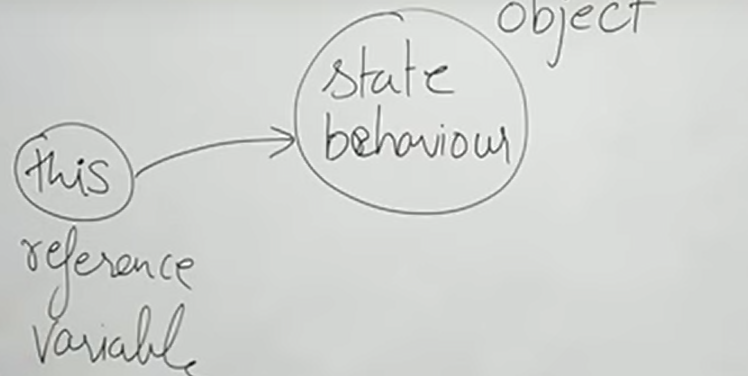 object
state
behaviour
this
reference
variable